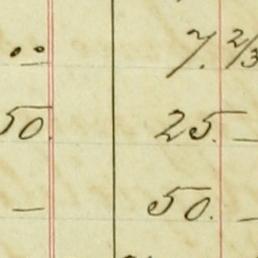 .. 7. 2/3
50. 25. —
— 50. —